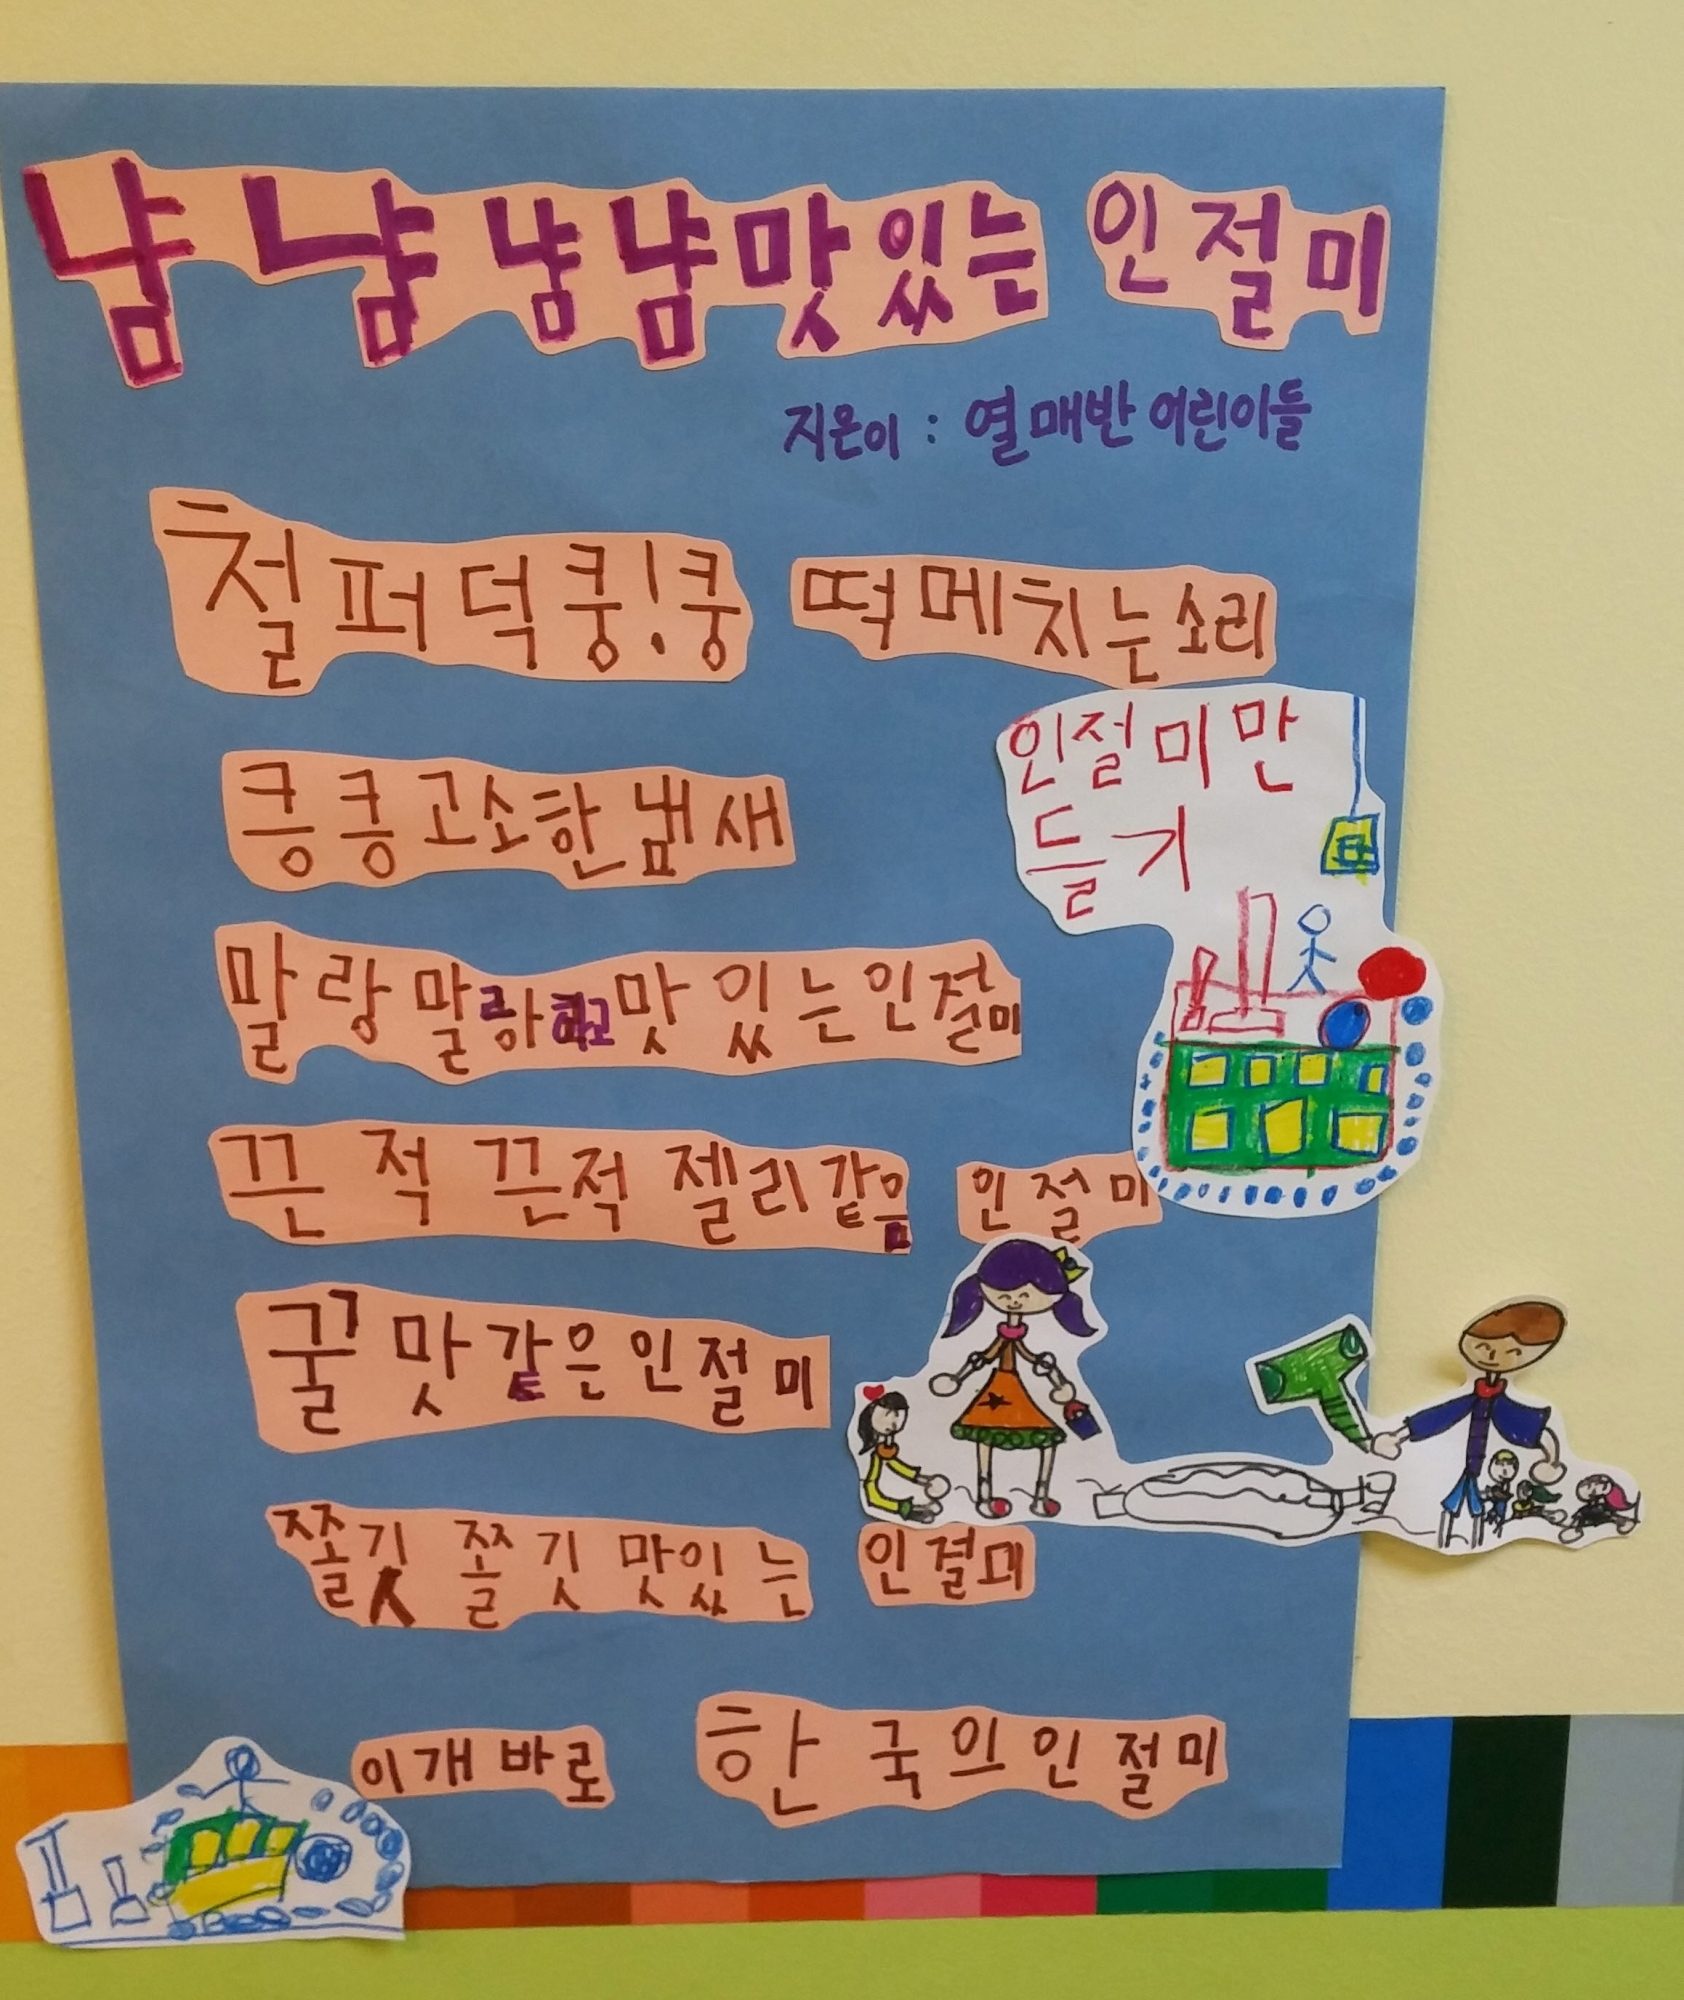 냠 냠 냠 냠 맛있는 인절미
지은이 : 열매반 어린이들
철퍼덕 쿵! 쿵 떡메치는소리
킁킁 고소한 냄새
인절미 만
들기
말랑말라하고 맛있는 인절미
끈적 끈적 젤리같음 인절미
꿀맛 같은 인절미
쫄깃 쫄깃 맛있는 인결미
이개 바로 한국의 인절미